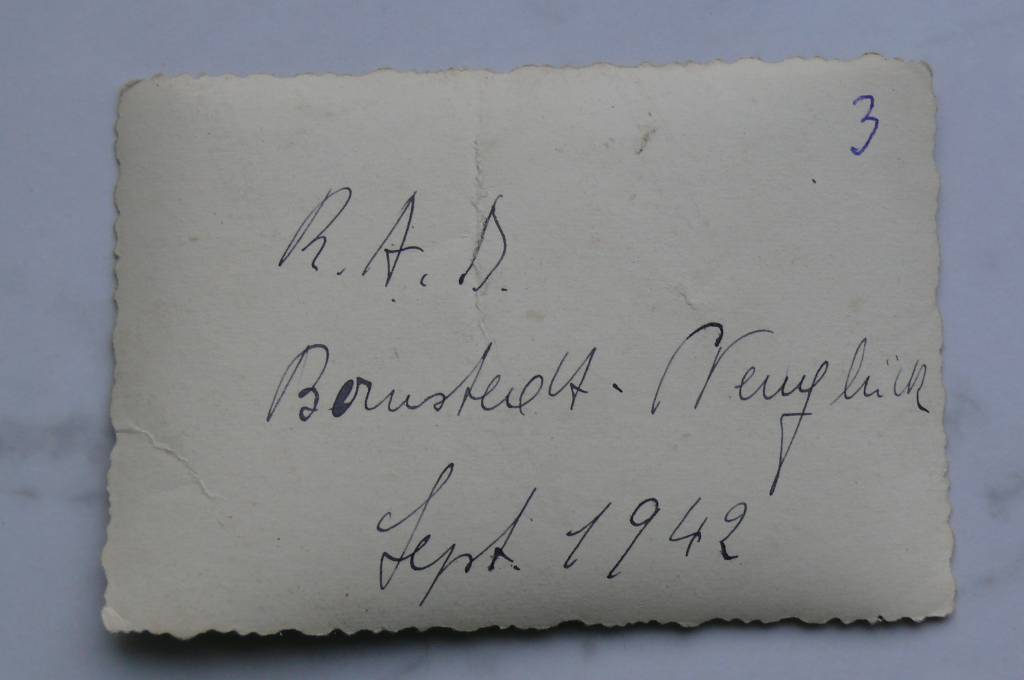 3
R. A. D.
Bornstedt - Neuglück
Sept. 1942